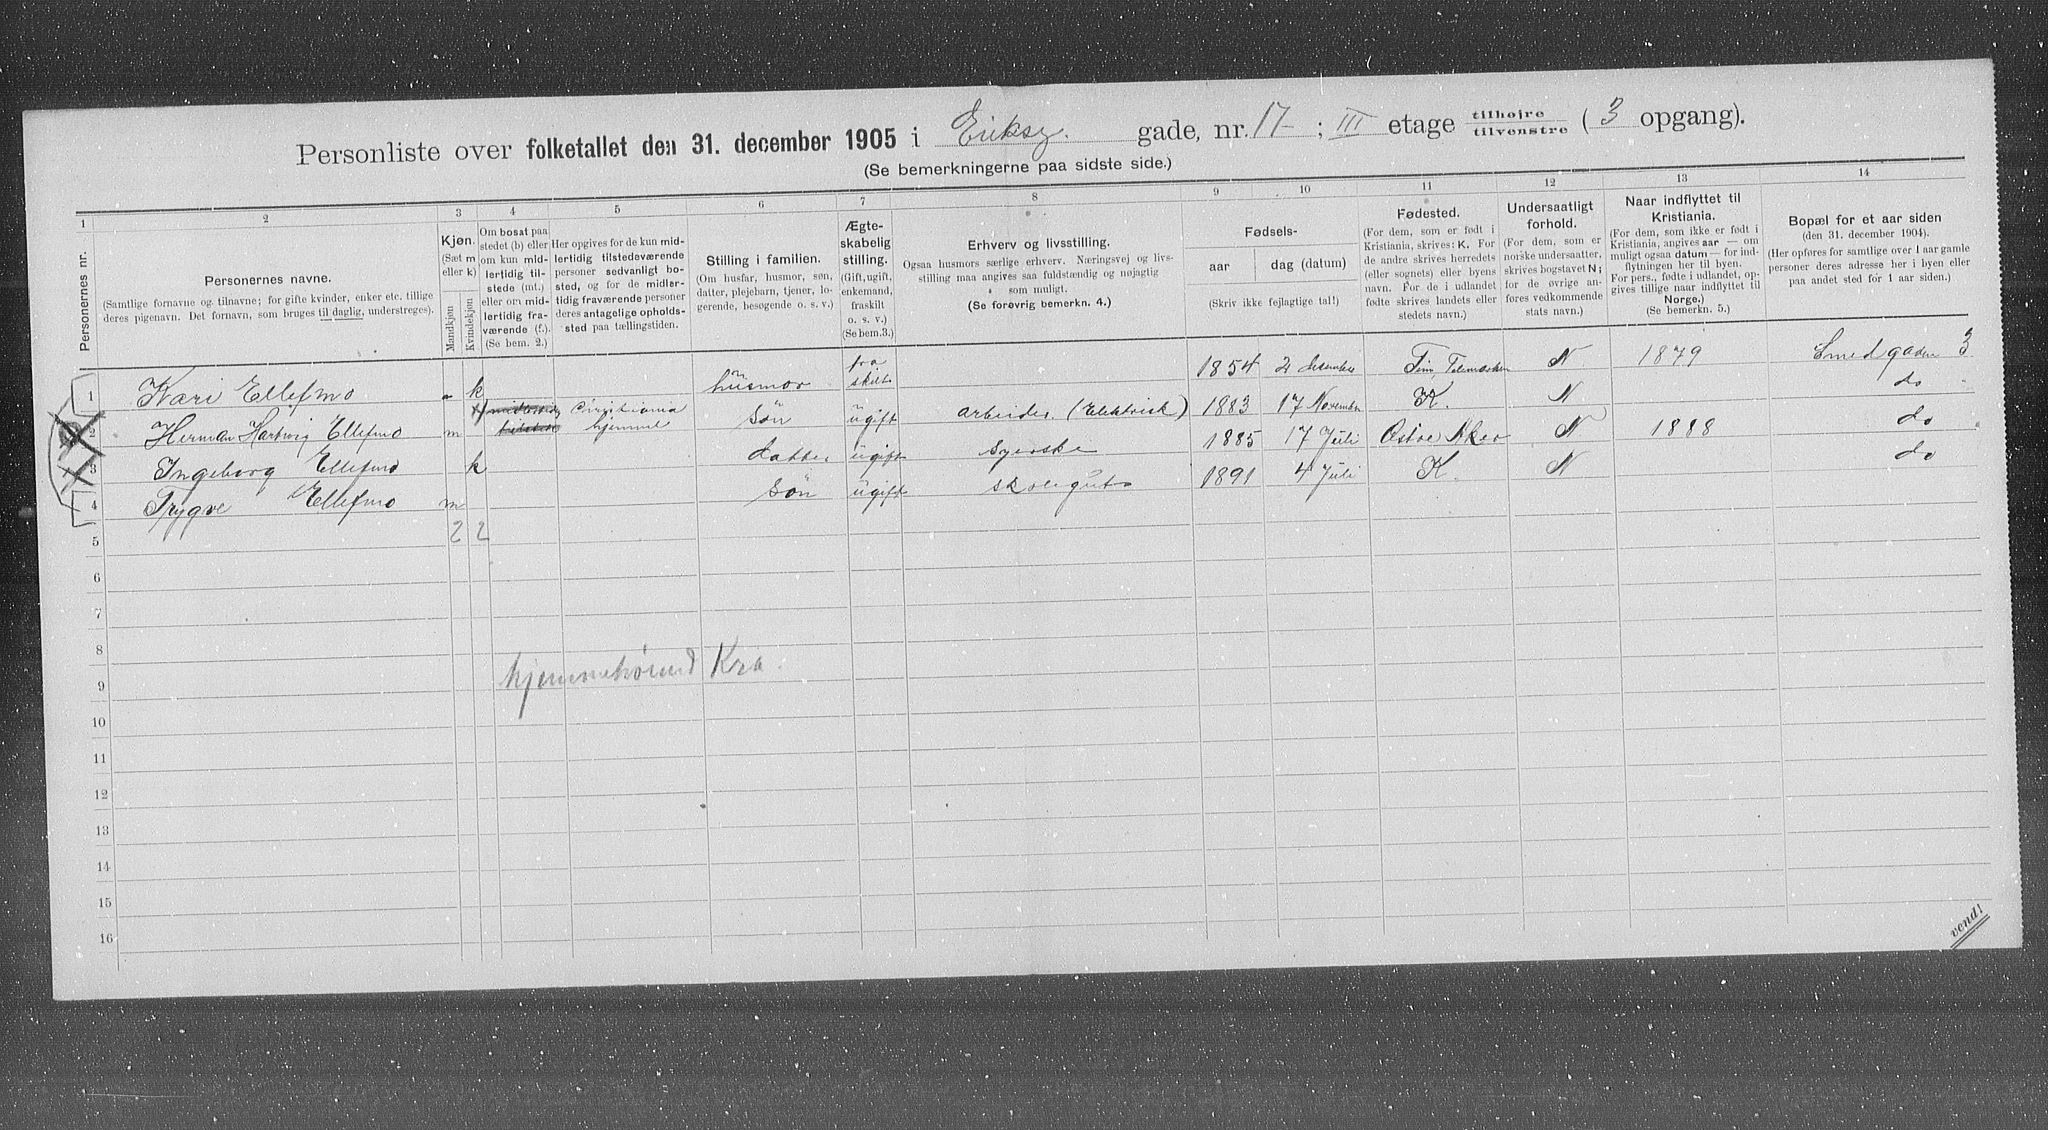 Personliste over folketallet den 31. december 1905 i Eriksg. gade, nr. 17 ; III etage tilhøjre tilvenstre ( 3 opgang).
(Se bemerkningerne paa sidste side.)
1 2 3 4 5 6 7 8 9 10 11 12 13 14
Personernes nr.
Personernes navne.
(Samtlige fornavne og tilnavne; for gifte kvinder, enker etc. tillige deres pigenavn. Det fornavn, som bruges til daglig, understreges).
Kjøn.
(Sæt m eller k).
Mandkjøn
Kvindekjøn
Om bosat paa stedet (b) eller om kun midlertidig tilstede (mt.) eller om midlertidig fraværende (f.).
(Se bem. 2.)
Her opgives for de kun midlertidig tilstedeværende personer sedvanligt bosted, og for de midlertidig fraværende personer deres antagelige opholdssted paa tællingstiden.
Stilling i familien.
(Om husfar, husmor, søn, datter, plejebarn, tjener, logerende, besøgende o. s. v.)
Ægteskabelig stilling.
(Gift, ugift, enkemand, fraskilt o. s. v.)
(Se bem. 3.)
Erhverv og livsstilling.
Ogsaa husmors særlige erhverv. Næringsvej og livsstilling maa angives saa fuldstændig og nøjagtig som muligt.
(Se forøvrig bemerkn. 4.)
Fødsels-
aar
dag (datum)
(Skriv ikke fejlagtige tal!)
Fødested.
(For dem, som er født i Kristiania, skrives: K. For de andre skrives herredets (eller sognets) eller byens navn. For de i udlandet fødte skrives landets eller stedets navn.)
Undersaatligt forhold.
(For dem, som er norske undersaatter, skrives bogstavet N; for de øvrige anføres vedkommende stats navn.)
Naar indflyttet til Kristiania.
(For dem, som ikke er født i Kristiania, angives aar — om muligt ogsaa datum — for indflytningen her til byen. For pers., fødte i udlandet, opgives tillige naar indflyttet til Norge.)
(Se bemerkn. 5.)
Bopæl for et aar siden
(den 31. december 1904).
(Her opføres for samtlige over 1 aar gamle personer deres adresse her i byen eller paa andet sted for 1 aar siden.)
1 Kari Ellefmo k husmor fraskilt 1854 2 desember Tin, Telemarken N 1879 Smedgaden 3
2 Herman Hartvig Ellefmo m Christiania hjemme Søn ugift arbeider (Elektrisk) 1883 17 November K. N do
3 Ingeborg Ellefmo k datter ugift Syerske 1885 17 Juli Østre Aker N 1888 do
4 Trygve Ellefmo m Søn ugift skolegut 1891 4 Juli K. N do
5 2 2
6
7
8
hjemmehørend Kra.
9
10
11
12
13
14
15
16
vend!